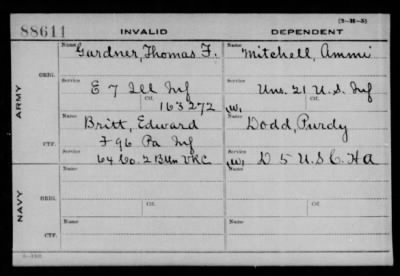 88611 INVALID DEPENDENT (3-H-5)
ARMY
ORIG.
Name Gardner, Thomas F.
Name Mitchell, Ammi
Service E 7 Ill Inf
Service Uns. 21 U.S. Inf
Ctf. 163272
Ctf. W.
CTF.
Name Britt, Edward
Name Dodd, Purdy
Service F 96 Pa Inf
64 Co. 2 Btln VRC
Service W. D 5 U S C. HA
NAVY
ORIG.
Name
Name
Service
Ctf.
Service
Ctf.
CTF.
Name
Name